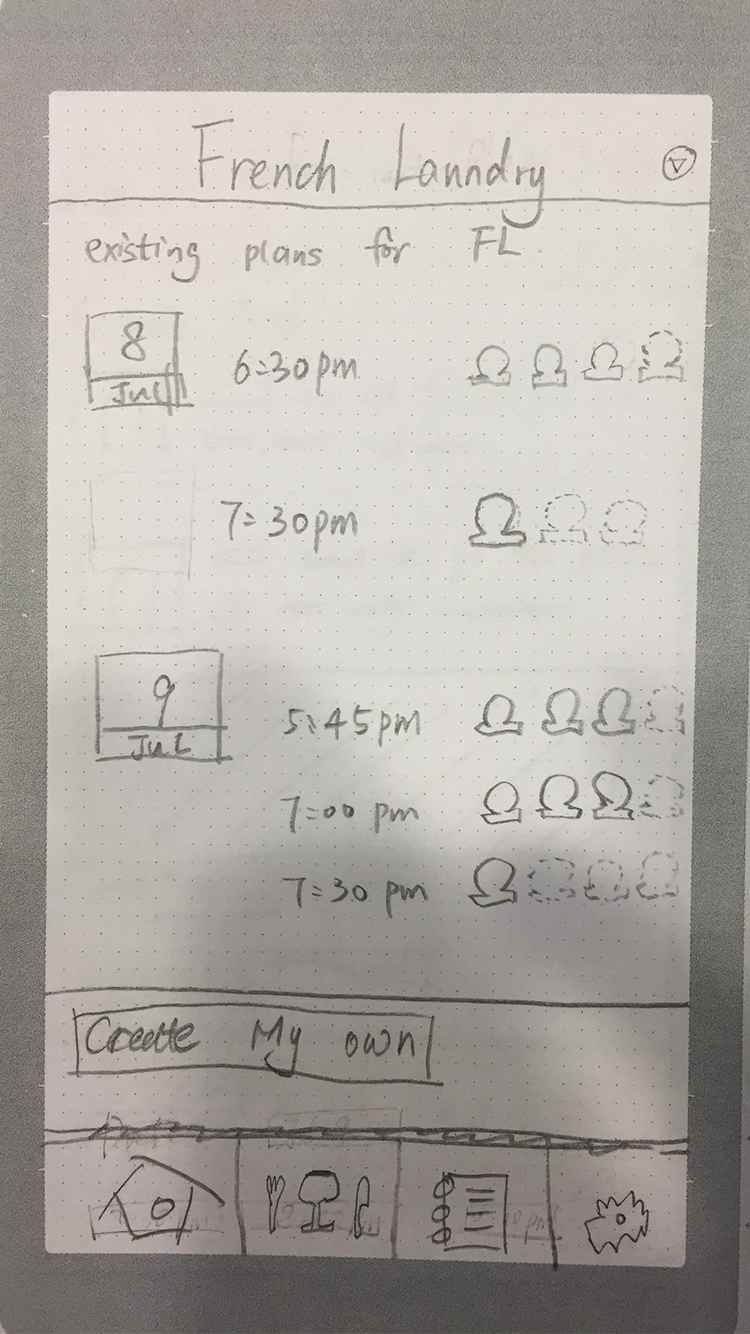 French Lanndry
existing plans for FL
8
Jul
6:30pm
7:30pm
9
Jul
5:45pm
7:00 pm
7:30 pm
Create My own